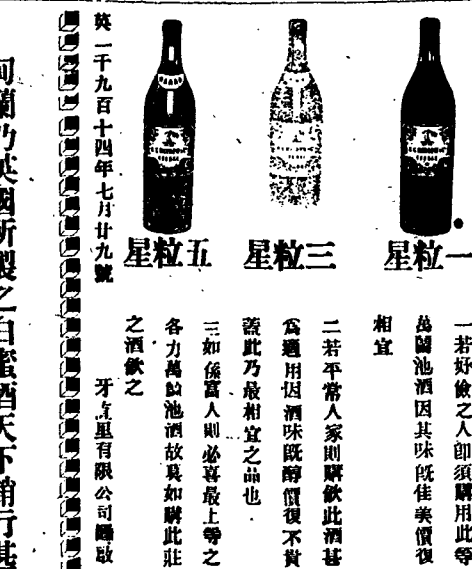 一粒星
三粒星
五粒星
一若好儉之人卽須購用此等
萬㘓池酒因其味旣佳美價復
相宜
二若平常人家則購飲此酒甚
爲適用因酒味旣醇價復不貴
蓋此乃最相宜之品也
三如係富人則必喜最上等之
各力萬㘓池酒故莫如購此莊
之酒飲之
牙直里有限公司謹啟
英一千九百十四年七月廿九號
阿蘭乃英國所製之白蜜酒天下銷行甚